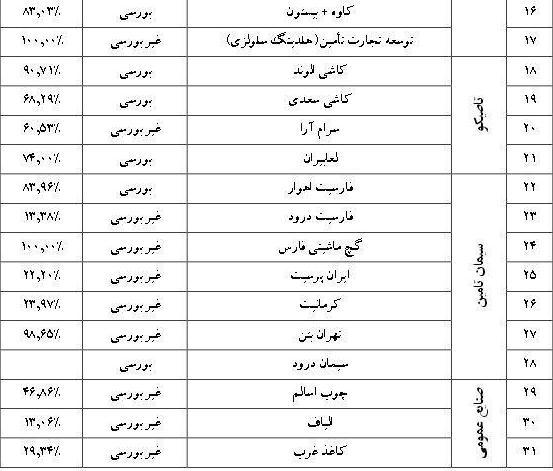 ۱۶ کاوه + بیستون بورسی ۸۳,۰۳٪
۱۷ توسعه تجارت تأمین(هلدینگ سلولزی) غیر بورسی ۱۰۰,۰۰٪
تاصیکو
۱۸ کاشی الوند بورسی ۹۰,۷۱٪
۱۹ کاشی سعدی بورسی ۶۸,۲۹٪
۲۰ سرام آرا غیر بورسی ۶۰,۵۳٪
۲۱ لعابیران بورسی ۷۴,۰۰٪
سیمان تامین
۲۲ فارسیت اهواز بورسی ۸۳,۹۶٪
۲۳ فارسیت درود غیر بورسی ۱۳,۳۸٪
۲۴ گچ ماشینی فارس غیر بورسی ۱۰۰,۰۰٪
۲۵ ایران پرسیت غیر بورسی ۲۲,۲۰٪
۲۶ کرمانیت غیر بورسی ۲۳,۹۷٪
۲۷ تهران بتن غیر بورسی ۹۸,۶۵٪
۲۸ سیمان درود بورسی
صنایع عمومی
۲۹ چوب اسالم غیر بورسی ۴۶,۸۶٪
۳۰ الیاف غیر بورسی ۱۳,۰۶٪
۳۱ کاغذ غرب غیر بورسی ۲۹,۳۴٪